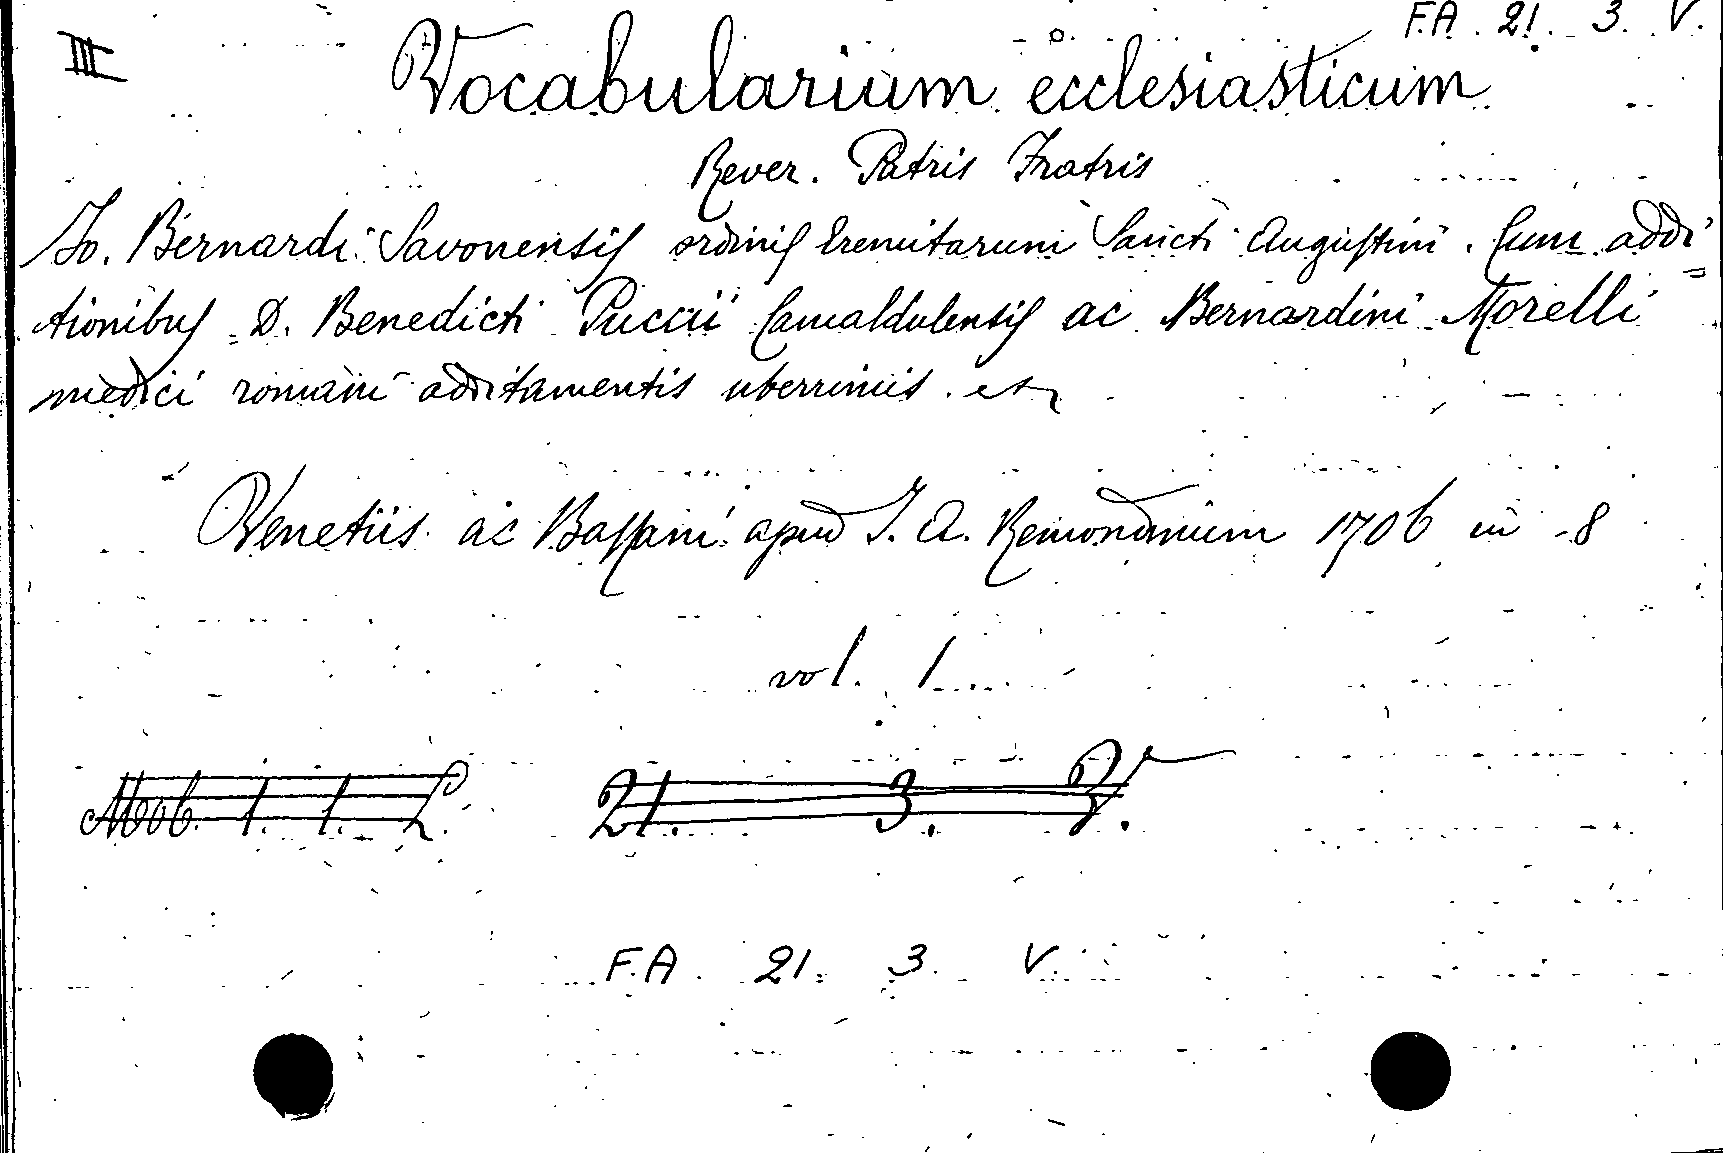 III
F.A. 21. 3. V.
Vocabularium ecclesiasticum
Rever. Patris Fratris
Jo. Bernardi Savonensis ordinis Eremitarum Sancti Augustini. Cum addi=
tionibus D. Benedicti Puccii Camaldulensis ac Bernardini Morelli
medici romani additamentis uberrimis. etc
Venetiis ac Bassani apud J. A. Remondinium 1706 in 8
vol. 1
Mob. 1. 1. L. 21. 3. V.
F.A. 21. 3. V.